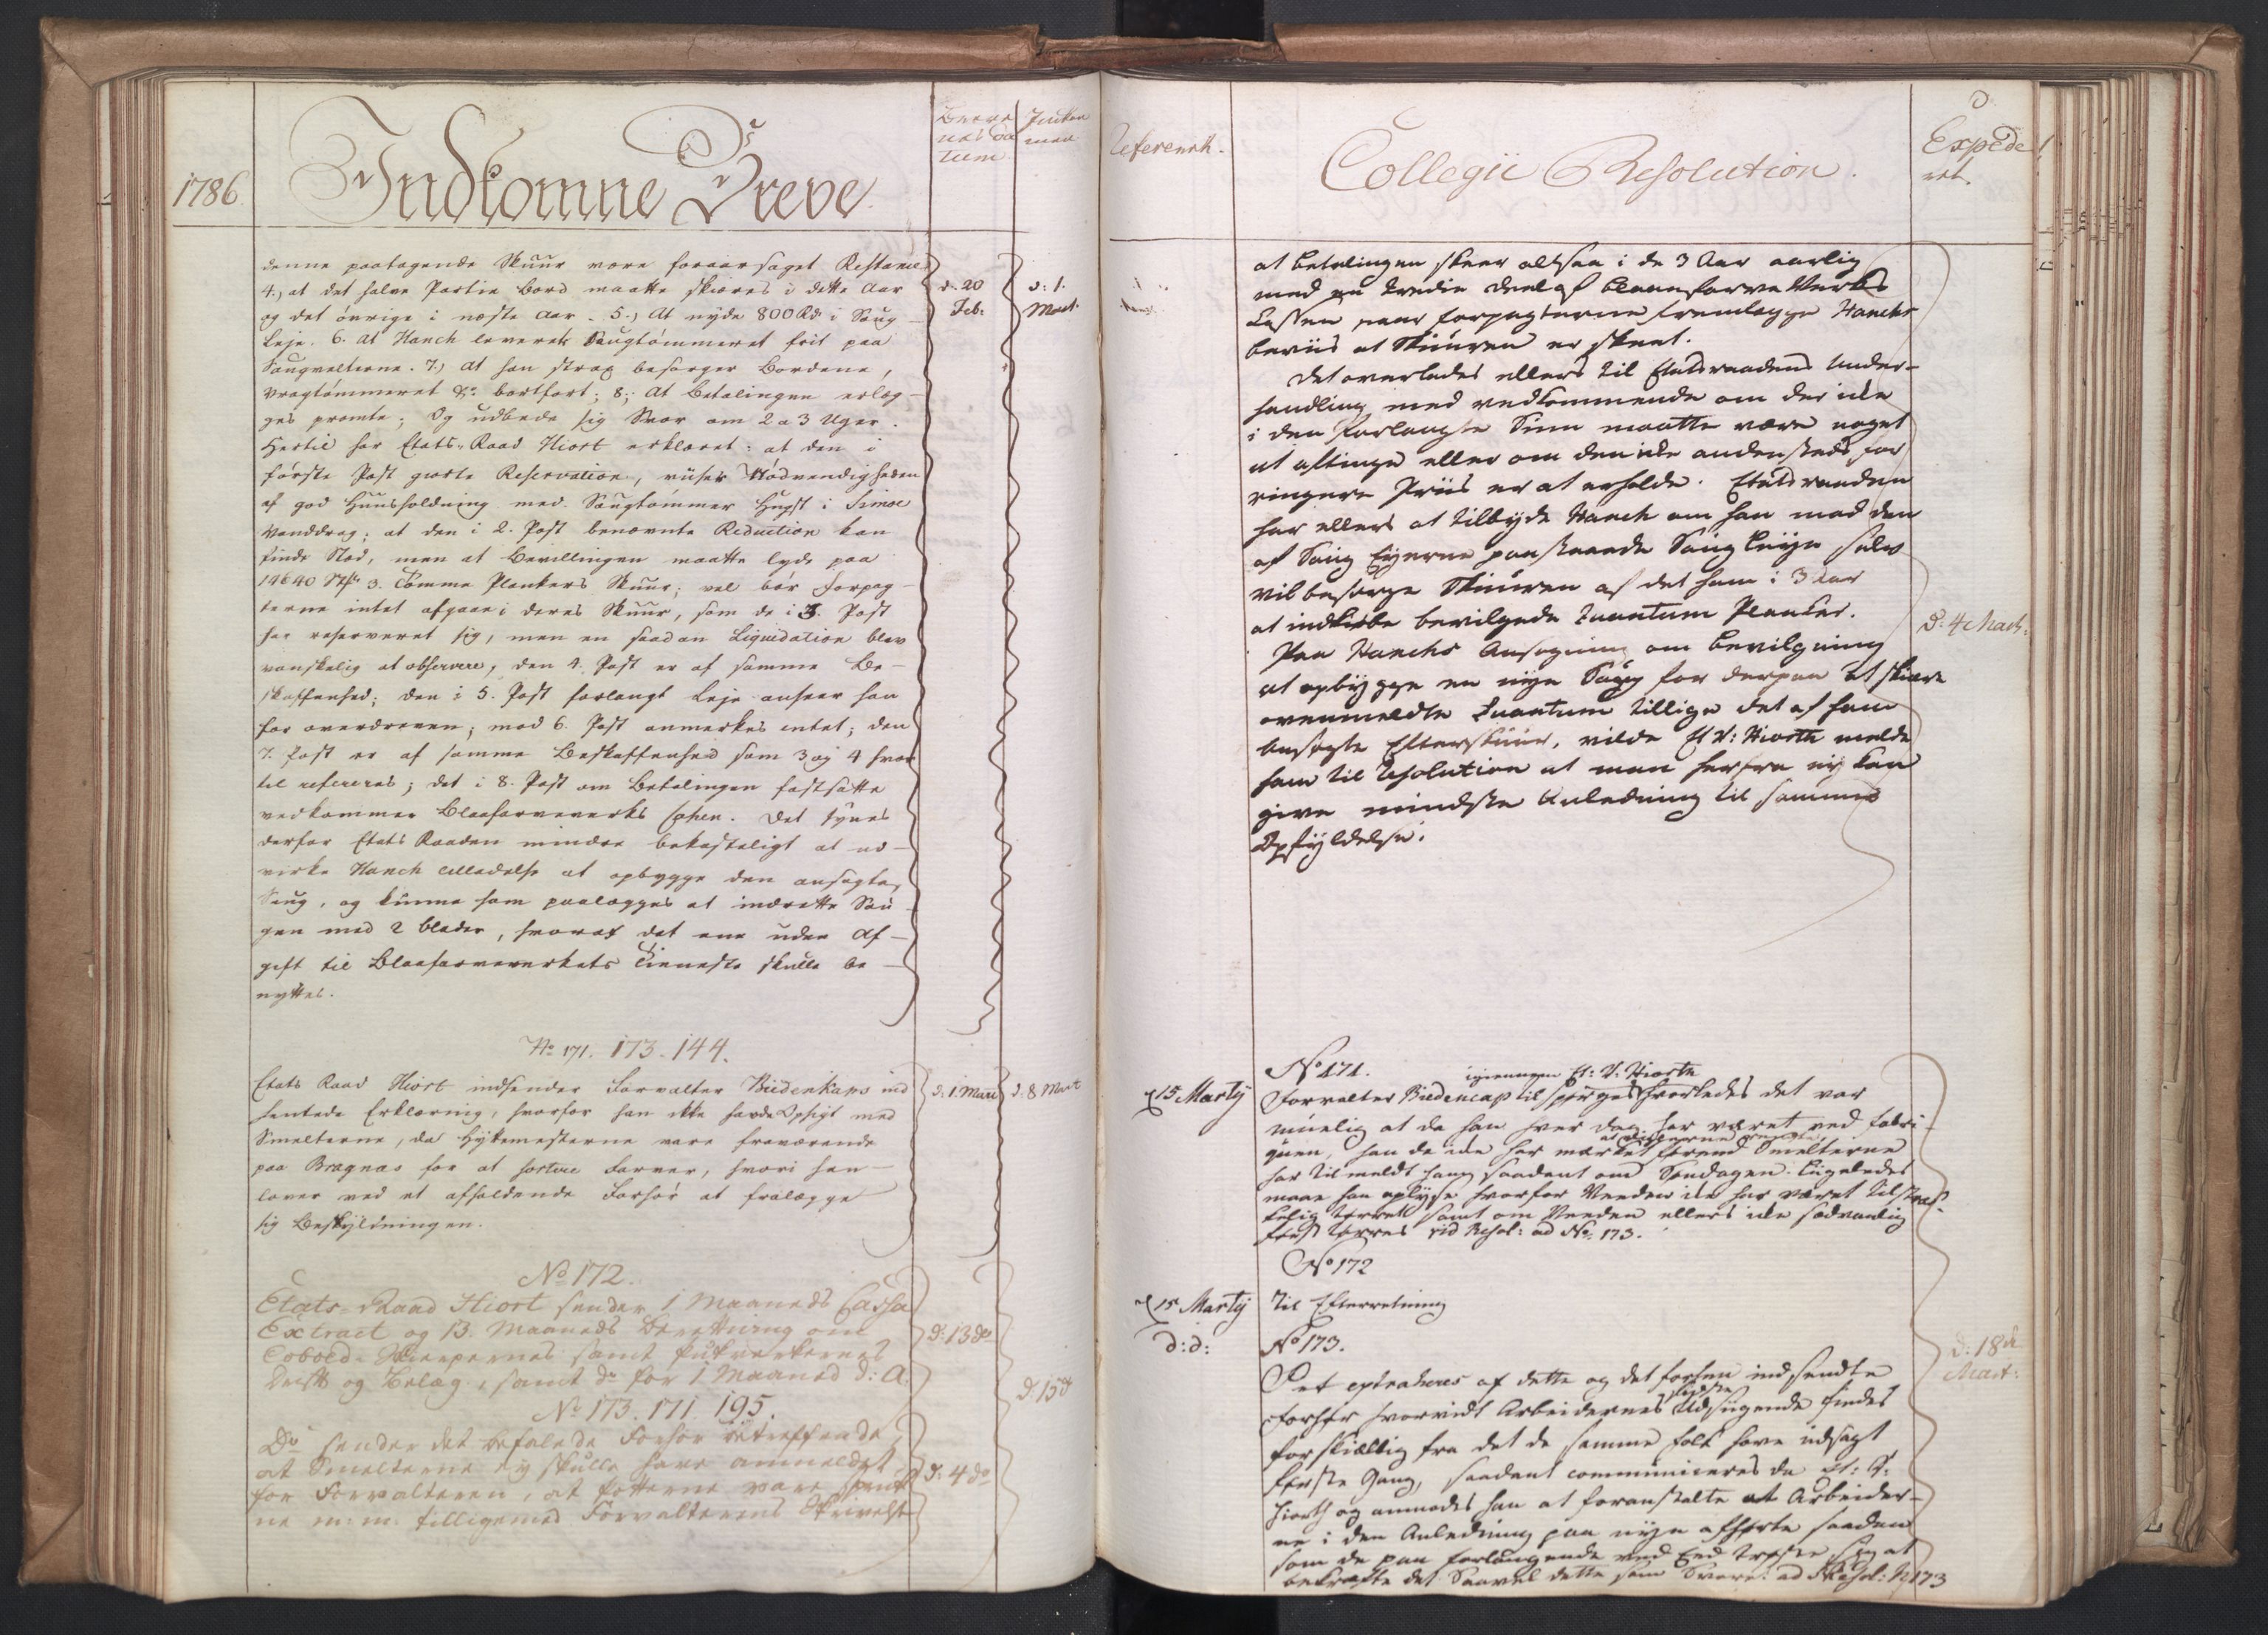 1786.
Indkomne Breve
Breve
nes Da
tum
Indkom
men
denne paatagende Skuur være foraarsaget Restance
4.) at det halve Partie Bord maatte skiæres i dette Aar
og det övrige i næste Aar. 5.) At nyde 800 Rd. i Saug
Leje. 6. At Hanch leverer Saugtömmeret frit paa
Saugvelterne. 7.) At han strax besörger Bordene,
Vragtömmeret &c. bortfört; 8.) At Betalingen erlæg-
ges promte; Og udbede sig Svar om 2 a 3 Uger.
Hertil har Etats-Raad Hiort erklæret: at den i
förste Post giorte Reservation, viiser Nödvendigheden
af god Huusholdning med Saugtömmer Hugst i Simoe
Vanddrag; at den i 2. Post benævnte Reduction kan
finde Sted, men at Bevillingen maatte lyde paa
14640 3. Tomme Plankers Skuur; vel bör Forpag-
terne intet afgaae i deres Skuur, som de i 3. Post
har reserveret sig, men en saadan Liqvidation blev
vanskelig at observere; den 4. Post er af samme Be-
skaffenhed; den i 5. Post forlangt Leje anseer han
for overdreven; mod 6. Post anmerkes intet; den
7. Post er af samme Beskaffenhed som 3 og 4 hvor
til refereres; det i 8. Post om Betalingen fastsatte
vedkommer Blaafarveverks Cassen. Det synes
derfor Etats Raaden mindre bekosteligt at ud-
virke Hanch tilladelse at opbygge den ansögte
Saug, og kunne ham paalægges at indrette Sau-
gen med 2 blader, hvoraf det ene uden Af-
gift til Blaafarveverkets Tieneste skulle be-
nyttes.
d. 20
Feb:
d: 1.
Mart.
No 171. 173. 144.
Etats Raad Hiort indsender Forvalter Biedenkaps ind
hentede Erklæring, hvorfor han ikke havde Opsigt med
Smelterne, da Hyttemesterne vare fraværende
paa Bragnæs for at sortere Farver, hvori han
lover ved et afholdende Forhör at fralægge
sig Beskyldningen.
d: 1. Marti
d: 8 Mart
No 172.
Etats-Raad Hiort sender 1 Maaneds Cassa
Extract og 13. Maaneds Beretning om
Cobold samt
Drift og Belæg, samt do for 1 Maaned d: A.
d: 13 do
No 173. 171. 195.
Do sender det befalede Forhör betreffende,
at Smelterne ey skulle have anmeldet
for Forvalteren, at Potterne vare
ne m: m: tilligemed Forvalterens Skrivelse
d: 4 do
d: 15 do
Referent.
Collegii Resolution.
Expede
ret.
at betalingen skeer altsaa i de 3 Aar aarlig
med en tredie deel af Blaaefarve Verks
Cassen naar forpagterne fremlægge Hanchs
beviis at Skuuren er skeet.
Det overlades ellers til Etatsraadens Under-
handling med vedkommende om der icke
i den forlangte Sum maatte være noget
at aftinge eller om den icke andensteds for
ringere Priis er at erholde. Etatsraaden
har ellers at tilbyde Hanch om han mod den
af Saug Eyerne paastaaede Saug Leye selv
vil besørge Skuuren af det ham i 3 Aar
at indkiøbe bevilgede Quantum Planker.
Paa Hanchs Ansøgning om bevilgning
at opbygge en nye Saug for derpaa at skiære
ovenmeldte Quantum tillige det af ham
ansøgte Efterskuur, vilde Et. R: Hiorth melde
ham til Resolution at man herfra ey kan
give mindste Anledning til sammes
Opfyldelse.
d: 4 Mart:
15 Martij
No 171.
igiennem Et: R: Hiorth
Forvalter Biedencap tilspørges hvorledes det var
muelig at da han hver dag har været ved fabri-
quen, han da icke har mærket forend Smelterne
har tilmeldt ham saadant om Søndagen. Ligeledes
maae han oplyse hvorfor Veeden icke har været tilstræk-
kelig tørret samt om Veeden ellers icke sædvanlig
først tørres vid Resol: ad No. 173.
No 172
15 Martij
Til Efterretning
d: d:
No 173.
extraheres af dette og det forhen indsendte
Forhør hvorvidt Arbeidernes sidste Udsigende findes
forskiællig fra det de samme folk have udsagt
første Gang, saadant communiceres da Et: R:
Hiorth og anmodes han at foranstalte at Arbeider-
ne i den Anledning paa nye afhørte saaden
som de paa forlangende ved Eed trøste sig at
bekræfte det. Saavel dette som Svaret ad Resol: N 173
d: 18de
Mart: